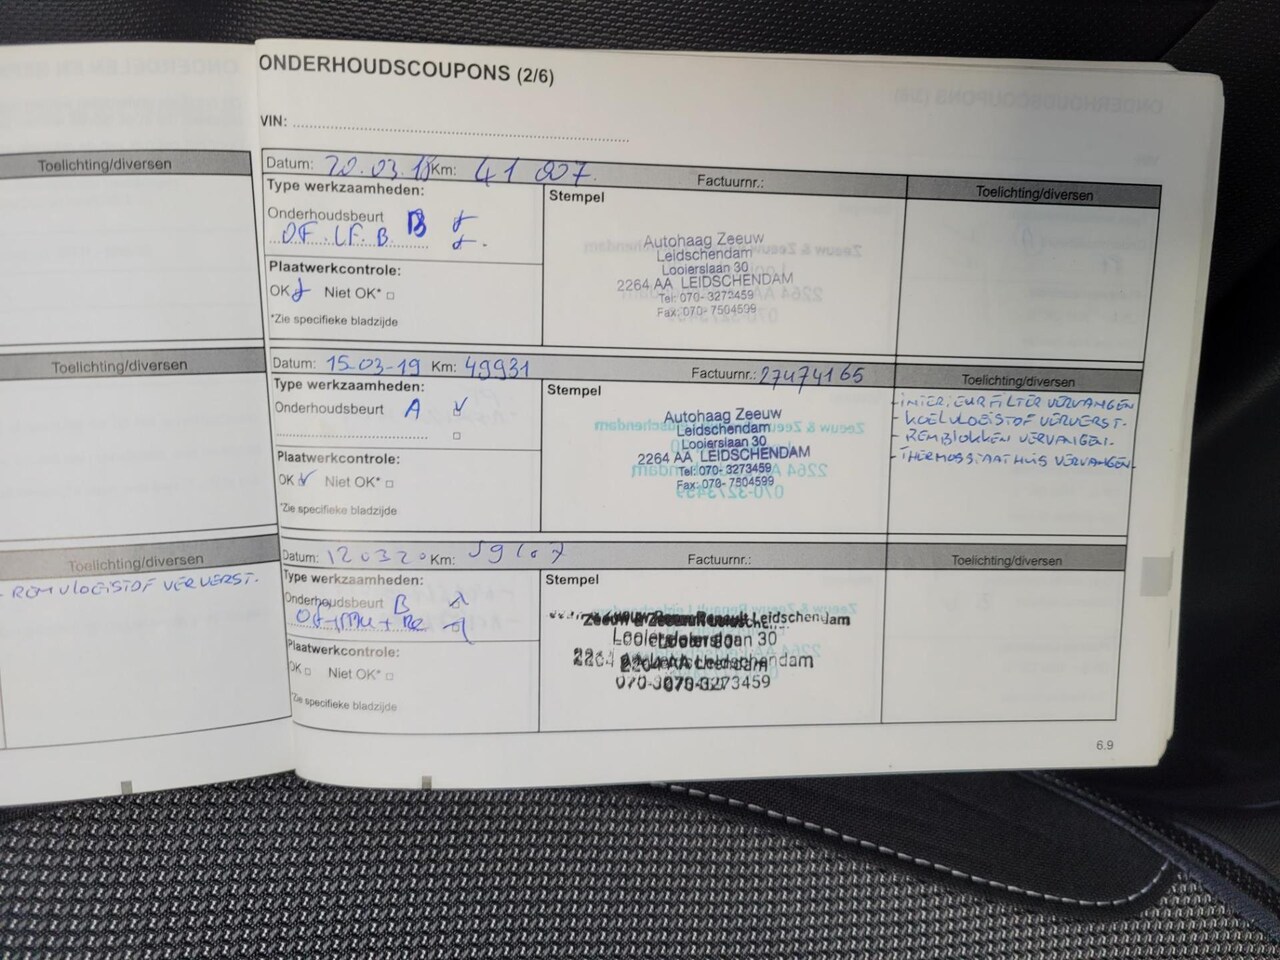 Toelichting/diversen
Toelichting/diversen
Toelichting/diversen
- REMVLOEISTOF VERVERST.
ONDERHOUDSCOUPONS (2/6)
VIN:
Datum: 20.03.18 Km: 41 007. Factuurnr.: Toelichting/diversen
Type werkzaamheden:
Stempel
Onderhoudsbeurt B
OF. LF. B.
Plaatwerkcontrole:
OK Niet OK*
*Zie specifieke bladzijde
Autohaag Zeeuw
Leidschendam
Looierslaan 30
2264 AA LEIDSCHENDAM
Tel: 070-3273459
Fax: 070-7504599
Datum: 15-03-19 Km: 49931 Factuurnr.: 27474165 Toelichting/diversen
Type werkzaamheden:
Stempel
Onderhoudsbeurt A
Plaatwerkcontrole:
OK Niet OK*
*Zie specifieke bladzijde
Autohaag Zeeuw
Leidschendam
Looierslaan 30
2264 AA LEIDSCHENDAM
Tel: 070-3273459
Fax: 070-7504599
- INTERIEURFILTER VERVANGEN
- KOELVLOEISTOF VERVERST.
- REMBLOKKEN VERVANGEN.
- THERMOSTAATHUIS VERVANGEN
Datum: 120320 Km: Factuurnr.: Toelichting/diversen
Type werkzaamheden:
Stempel
Onderhoudsbeurt B
Plaatwerkcontrole:
OK Niet OK*
*Zie specifieke bladzijde
Leidschendam
30
2264 AA Leidschendam
3273459
6.9